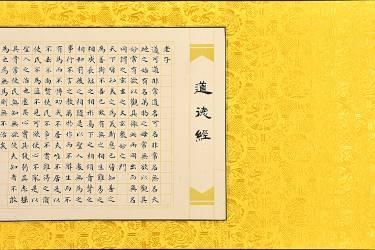 道德經
老子
道可道非常道名可名非常名無名天
地之始有名萬物之母常無欲以觀其
妙常有欲以觀其徼此兩者同出而異名
同謂之玄玄之又玄眾妙之門
天下皆知美之為美斯惡已皆知善之
為善斯不善已故有無之相生難易之
相成長短之相形高下之相傾音聲之
相和前後之相隨是以聖人處無為之
事行不言之教萬物作而不辭生而不
有為而不恃功成不居夫惟不居是以
不去不尚賢使民不爭不貴難得之貨
使民不為盜不見可欲使心不亂是以
聖人之治虛其心實其腹弱其志強
其骨常使民無知無欲使夫知者不敢
為也為無為則無不治矣